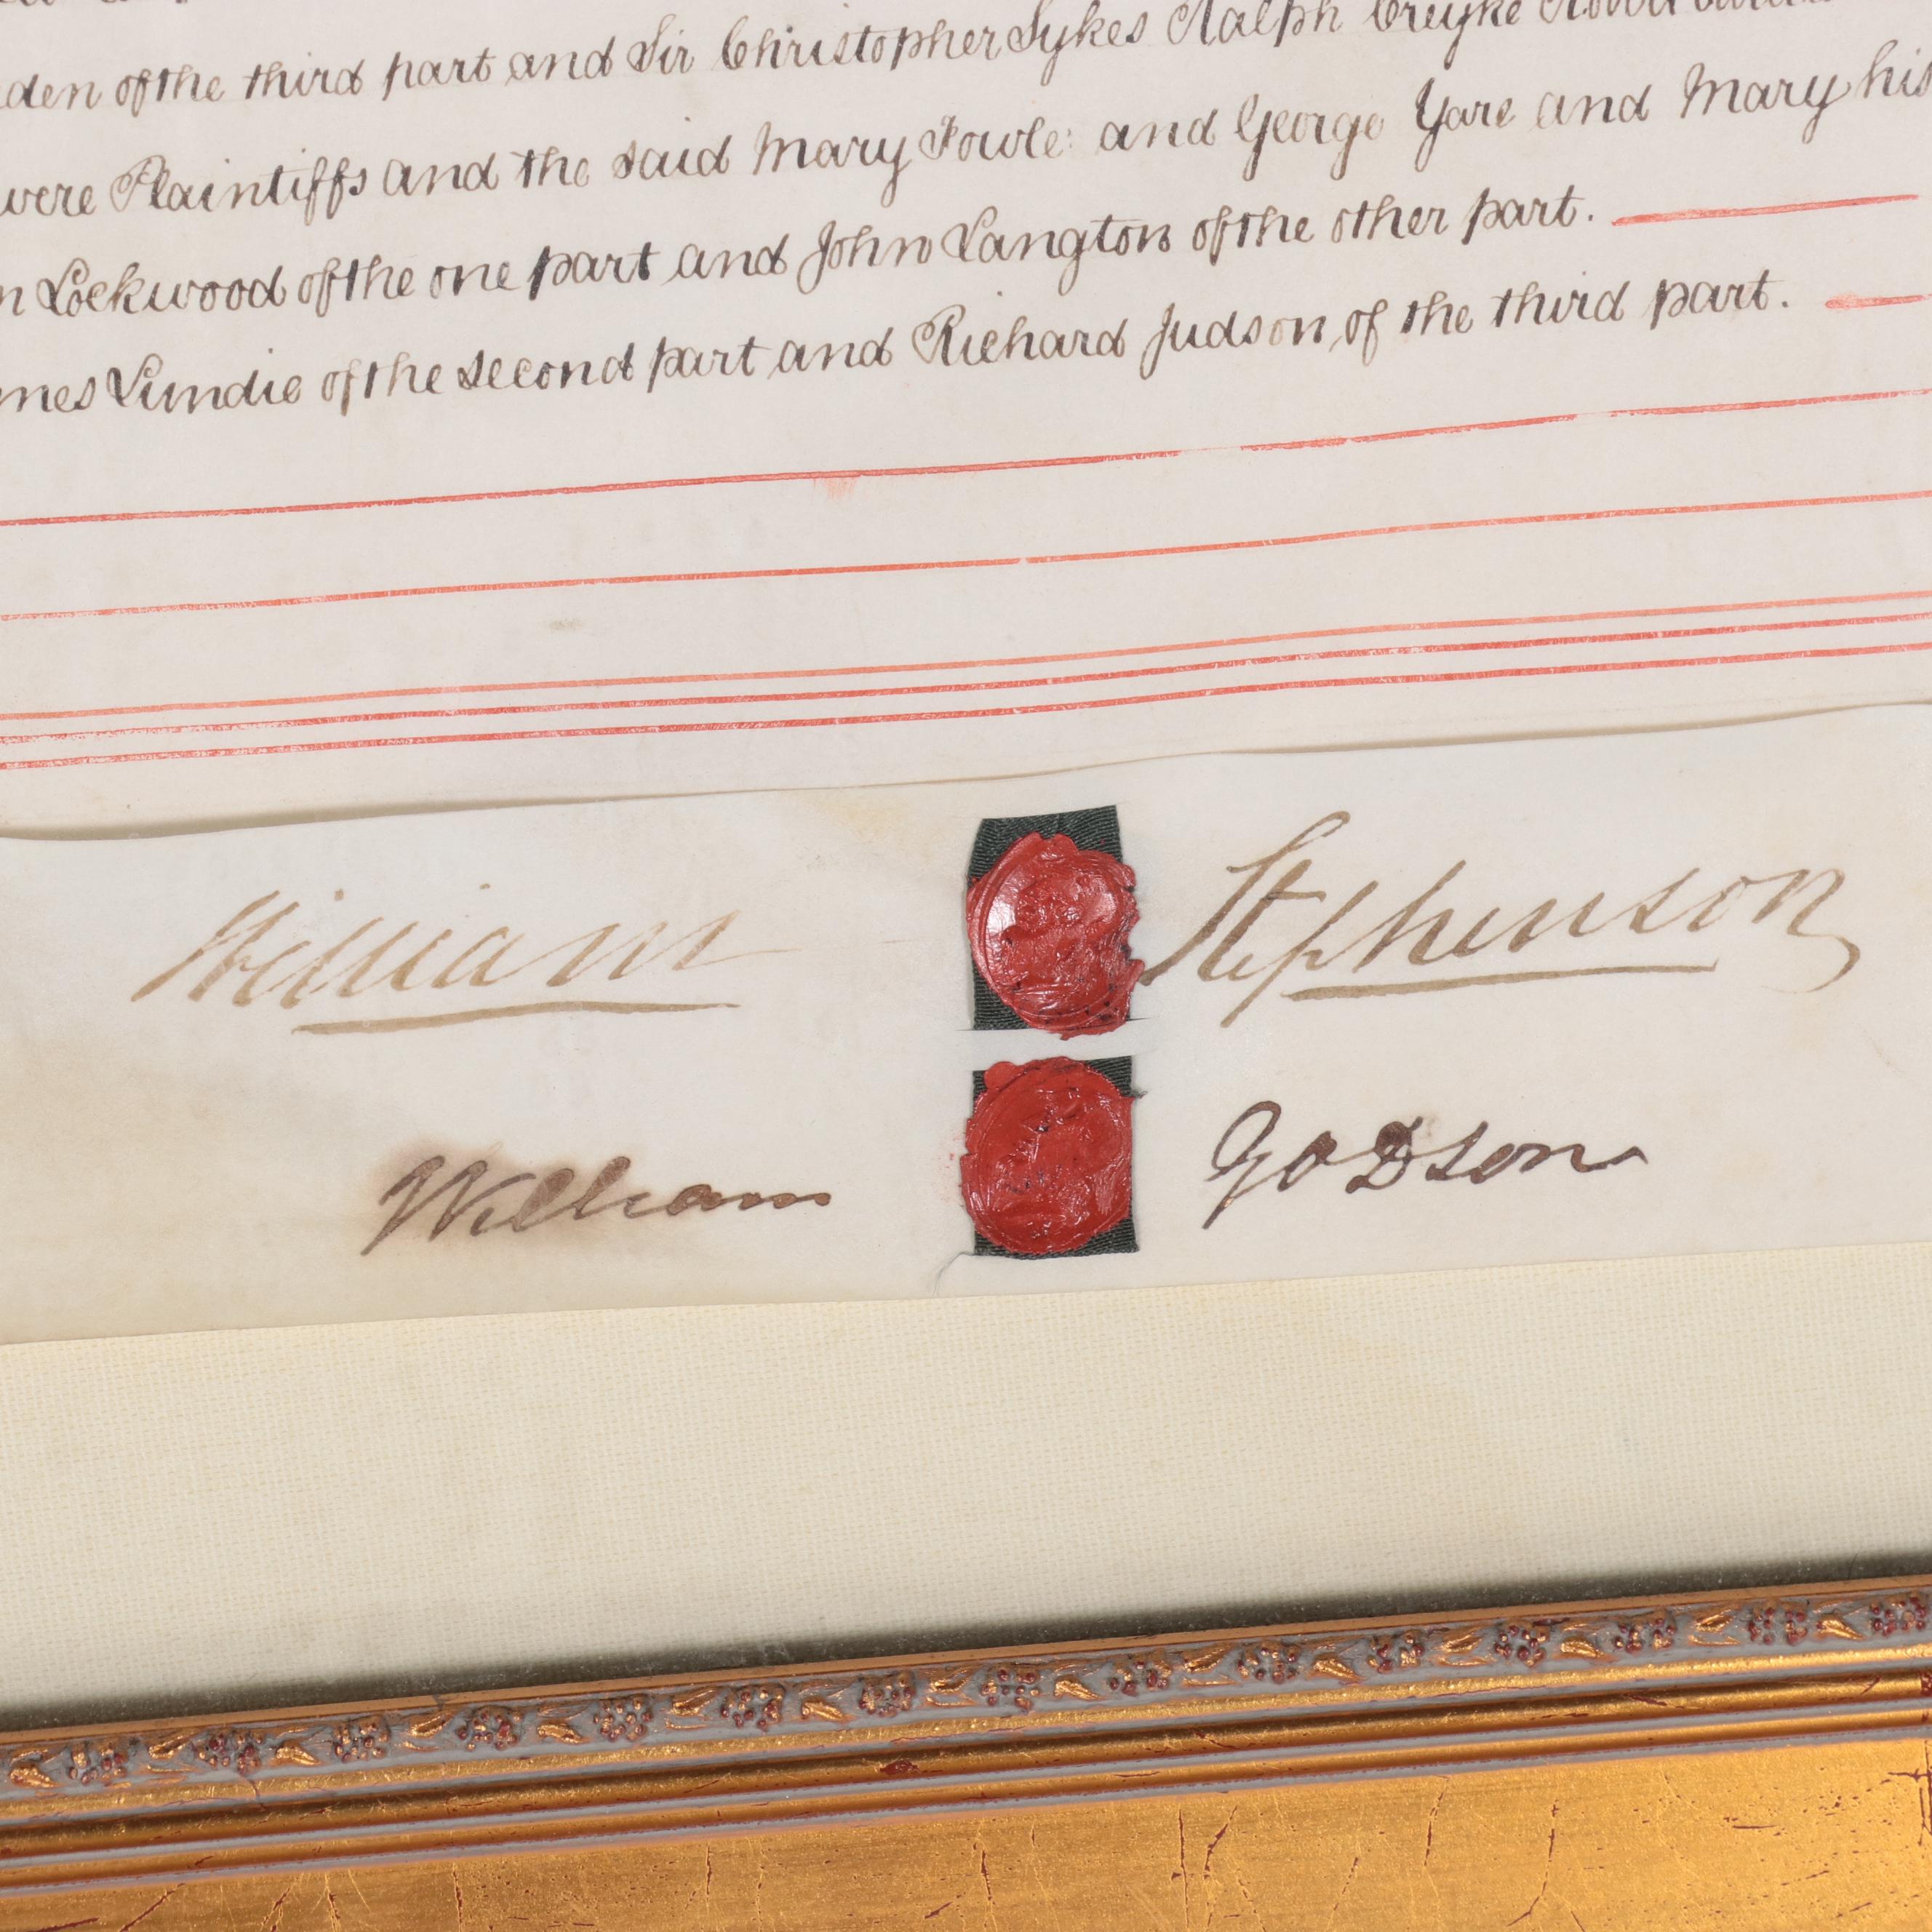 den of the third part and Sir Christopher Sykes Ralph Creyke
were Plaintiffs and the said Mary Fowle and George Yare and Mary his
n Lockwood of the one part and John Langton of the other part.
mes Lundie of the second part and Richard Judson of the third part.
William Stephenson
William Godson